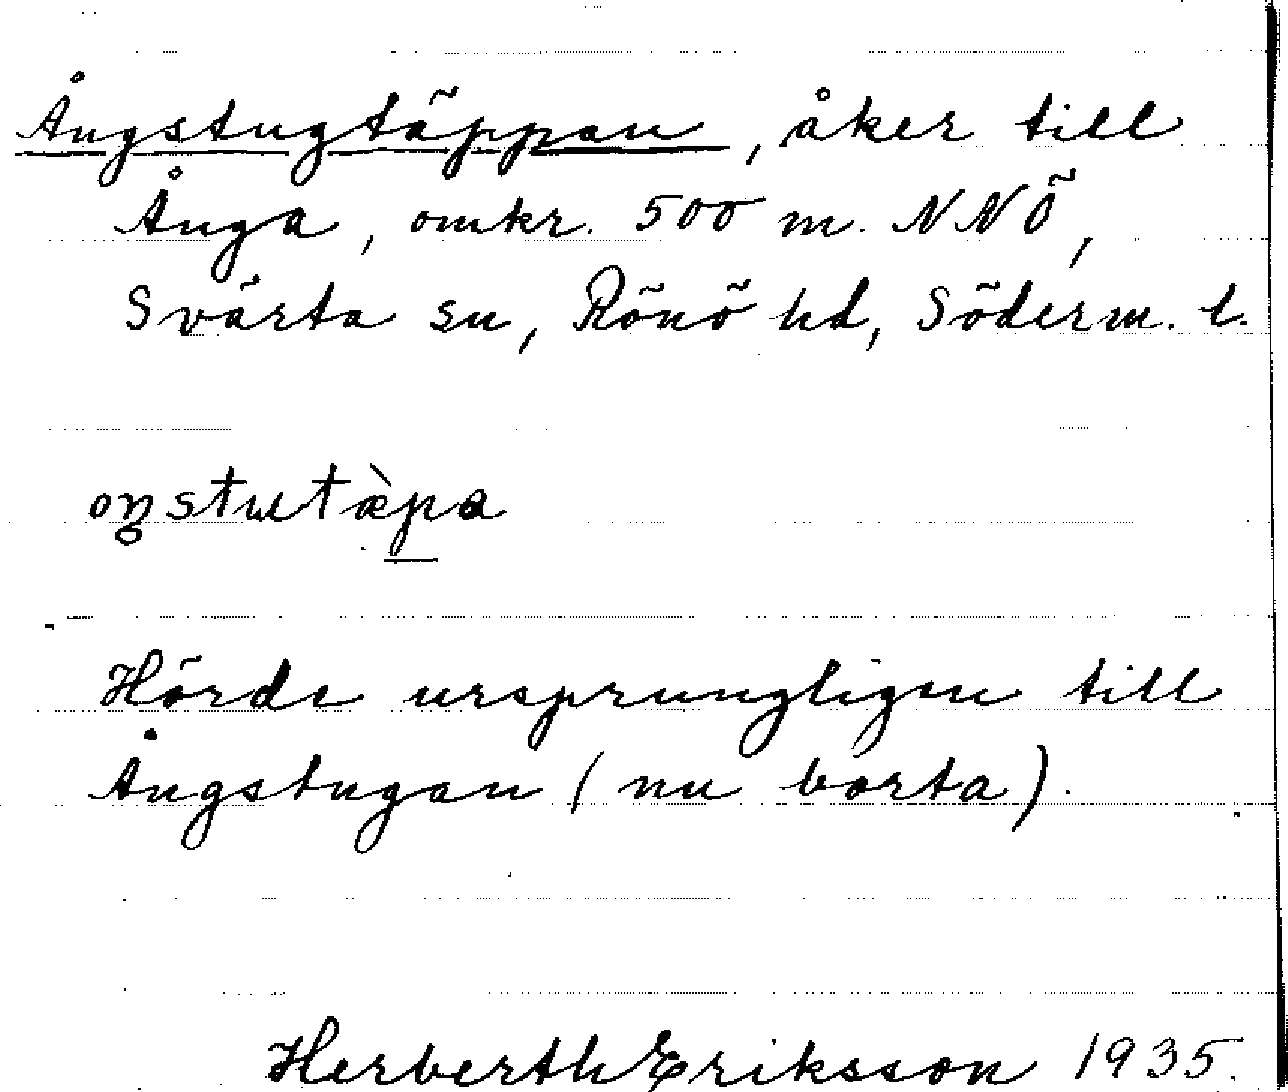 Ångstugtäppan, åker till
Ånga, omkr. 500 m. NNÖ,
Svärta sn, Rönö hd, Söderm. l.
oŋstutæ̀pa
Hörde ursprungligen till
Ångstugan (nu borta).
Herberth Eriksson 1935.